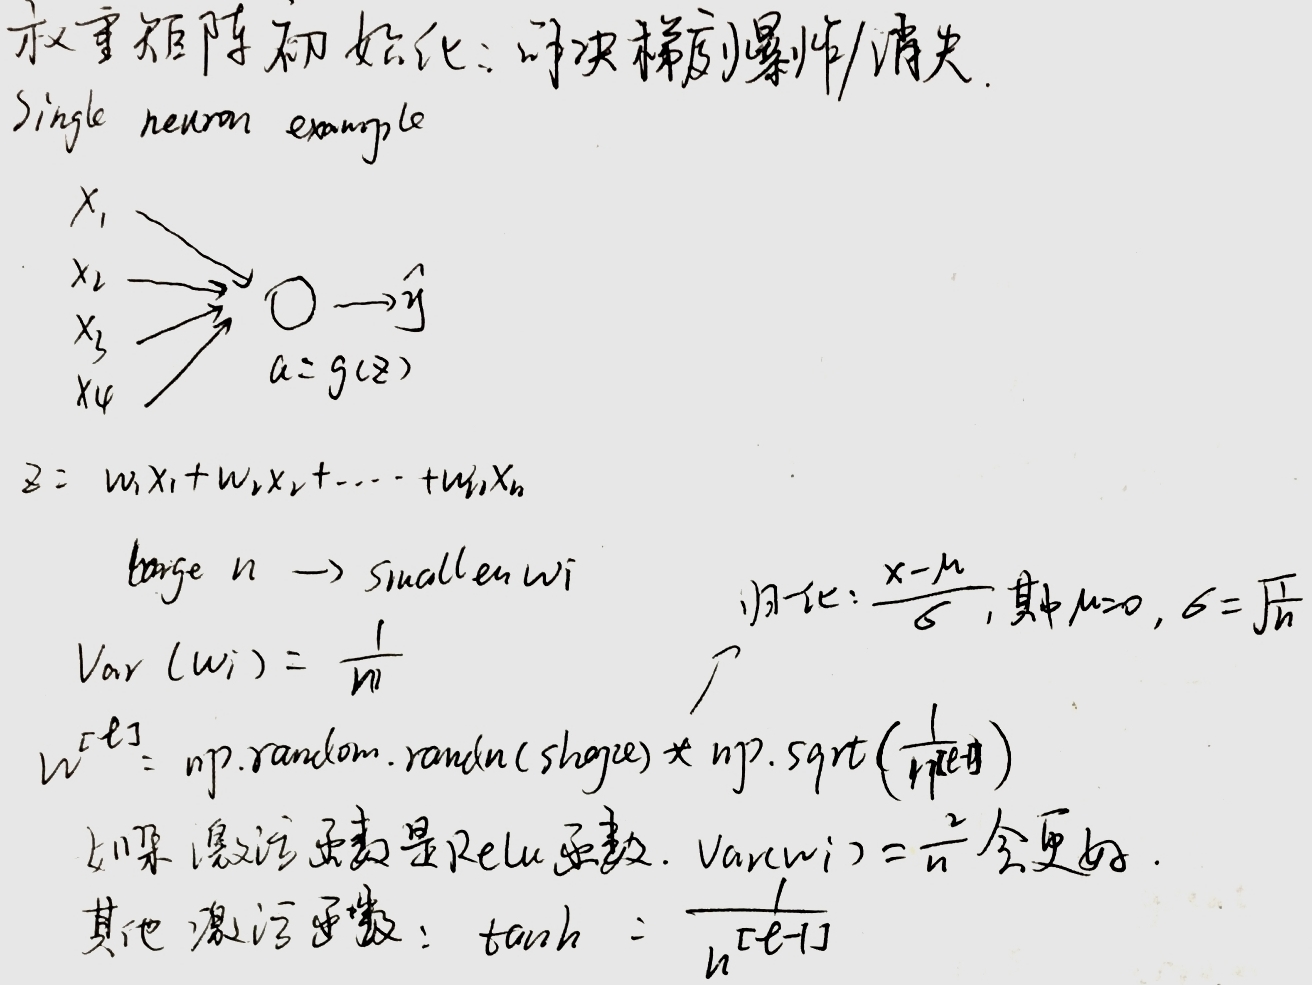 权重矩阵初始化：解决梯度爆炸/消失.
Single neuron example
x₁
x₂
x₃
x₄
→ ŷ
a = g(z)
z = w₁x₁ + w₂x₂ + ····· + wₙxₙ
large n → smaller wi
归一化: (x-μ)/σ, 其中 μ=0, σ = √(1/n)
Var (wi) = 1/n
w^[l] = np.random.randn(shape) * np.sqrt(1/n^[l-1])
如果激活函数是Relu函数. Var(wi) = 2/n 会更好.
其他激活函数: tanh : 1/n^[l-1]